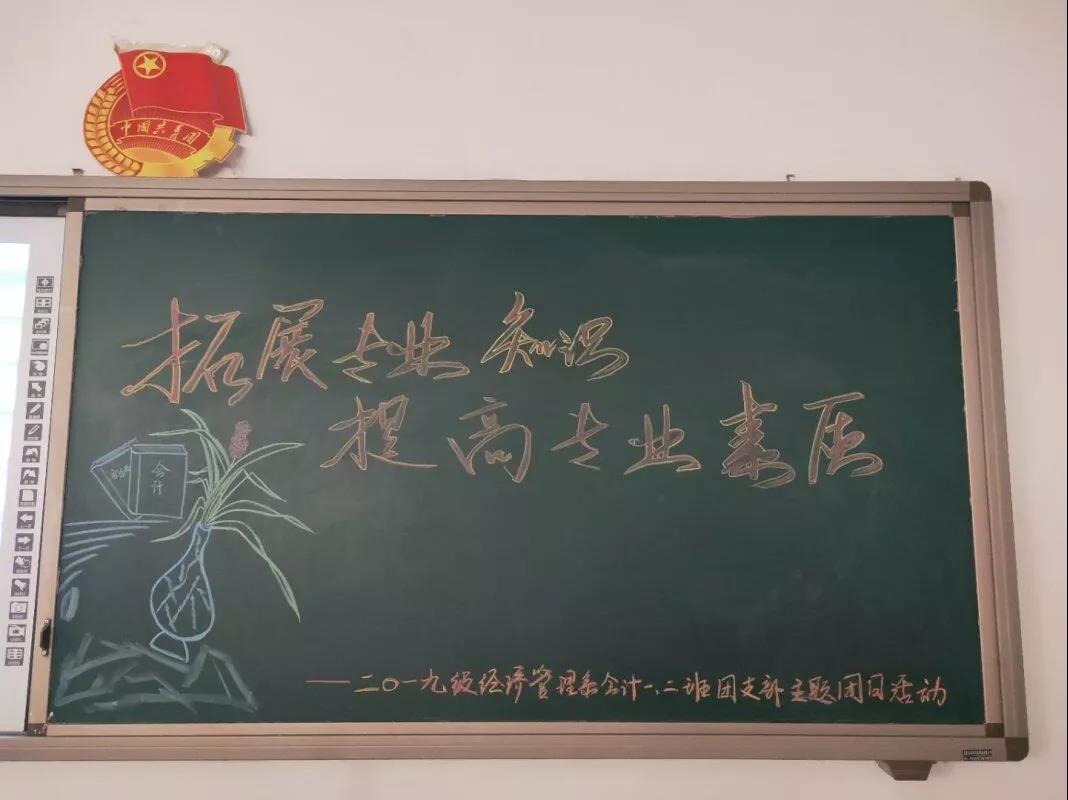 中国共青团
拓展专业知识
提高专业素质
会计
——二〇一九级经济管理系会计一、二班团支部主题团日活动